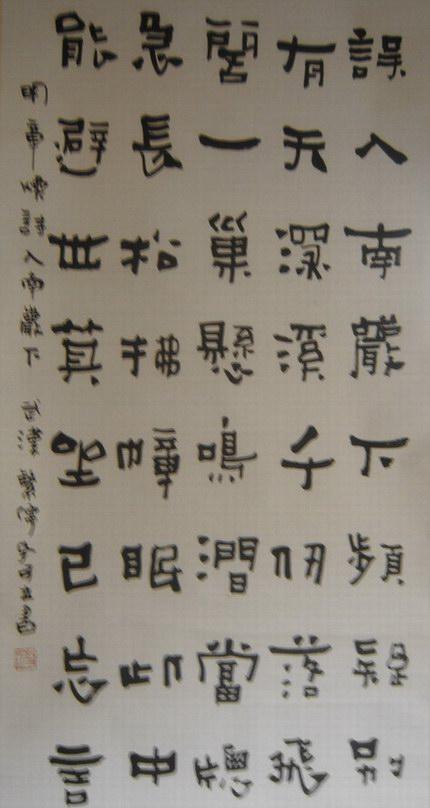 誤入南巖下頻疑別
有天深溪千仞落飛
一巢懸鳴澗當牕
急長松拂眠此中
能避世箕坐已忘言
明章煥詩入南巖下 武漢 書